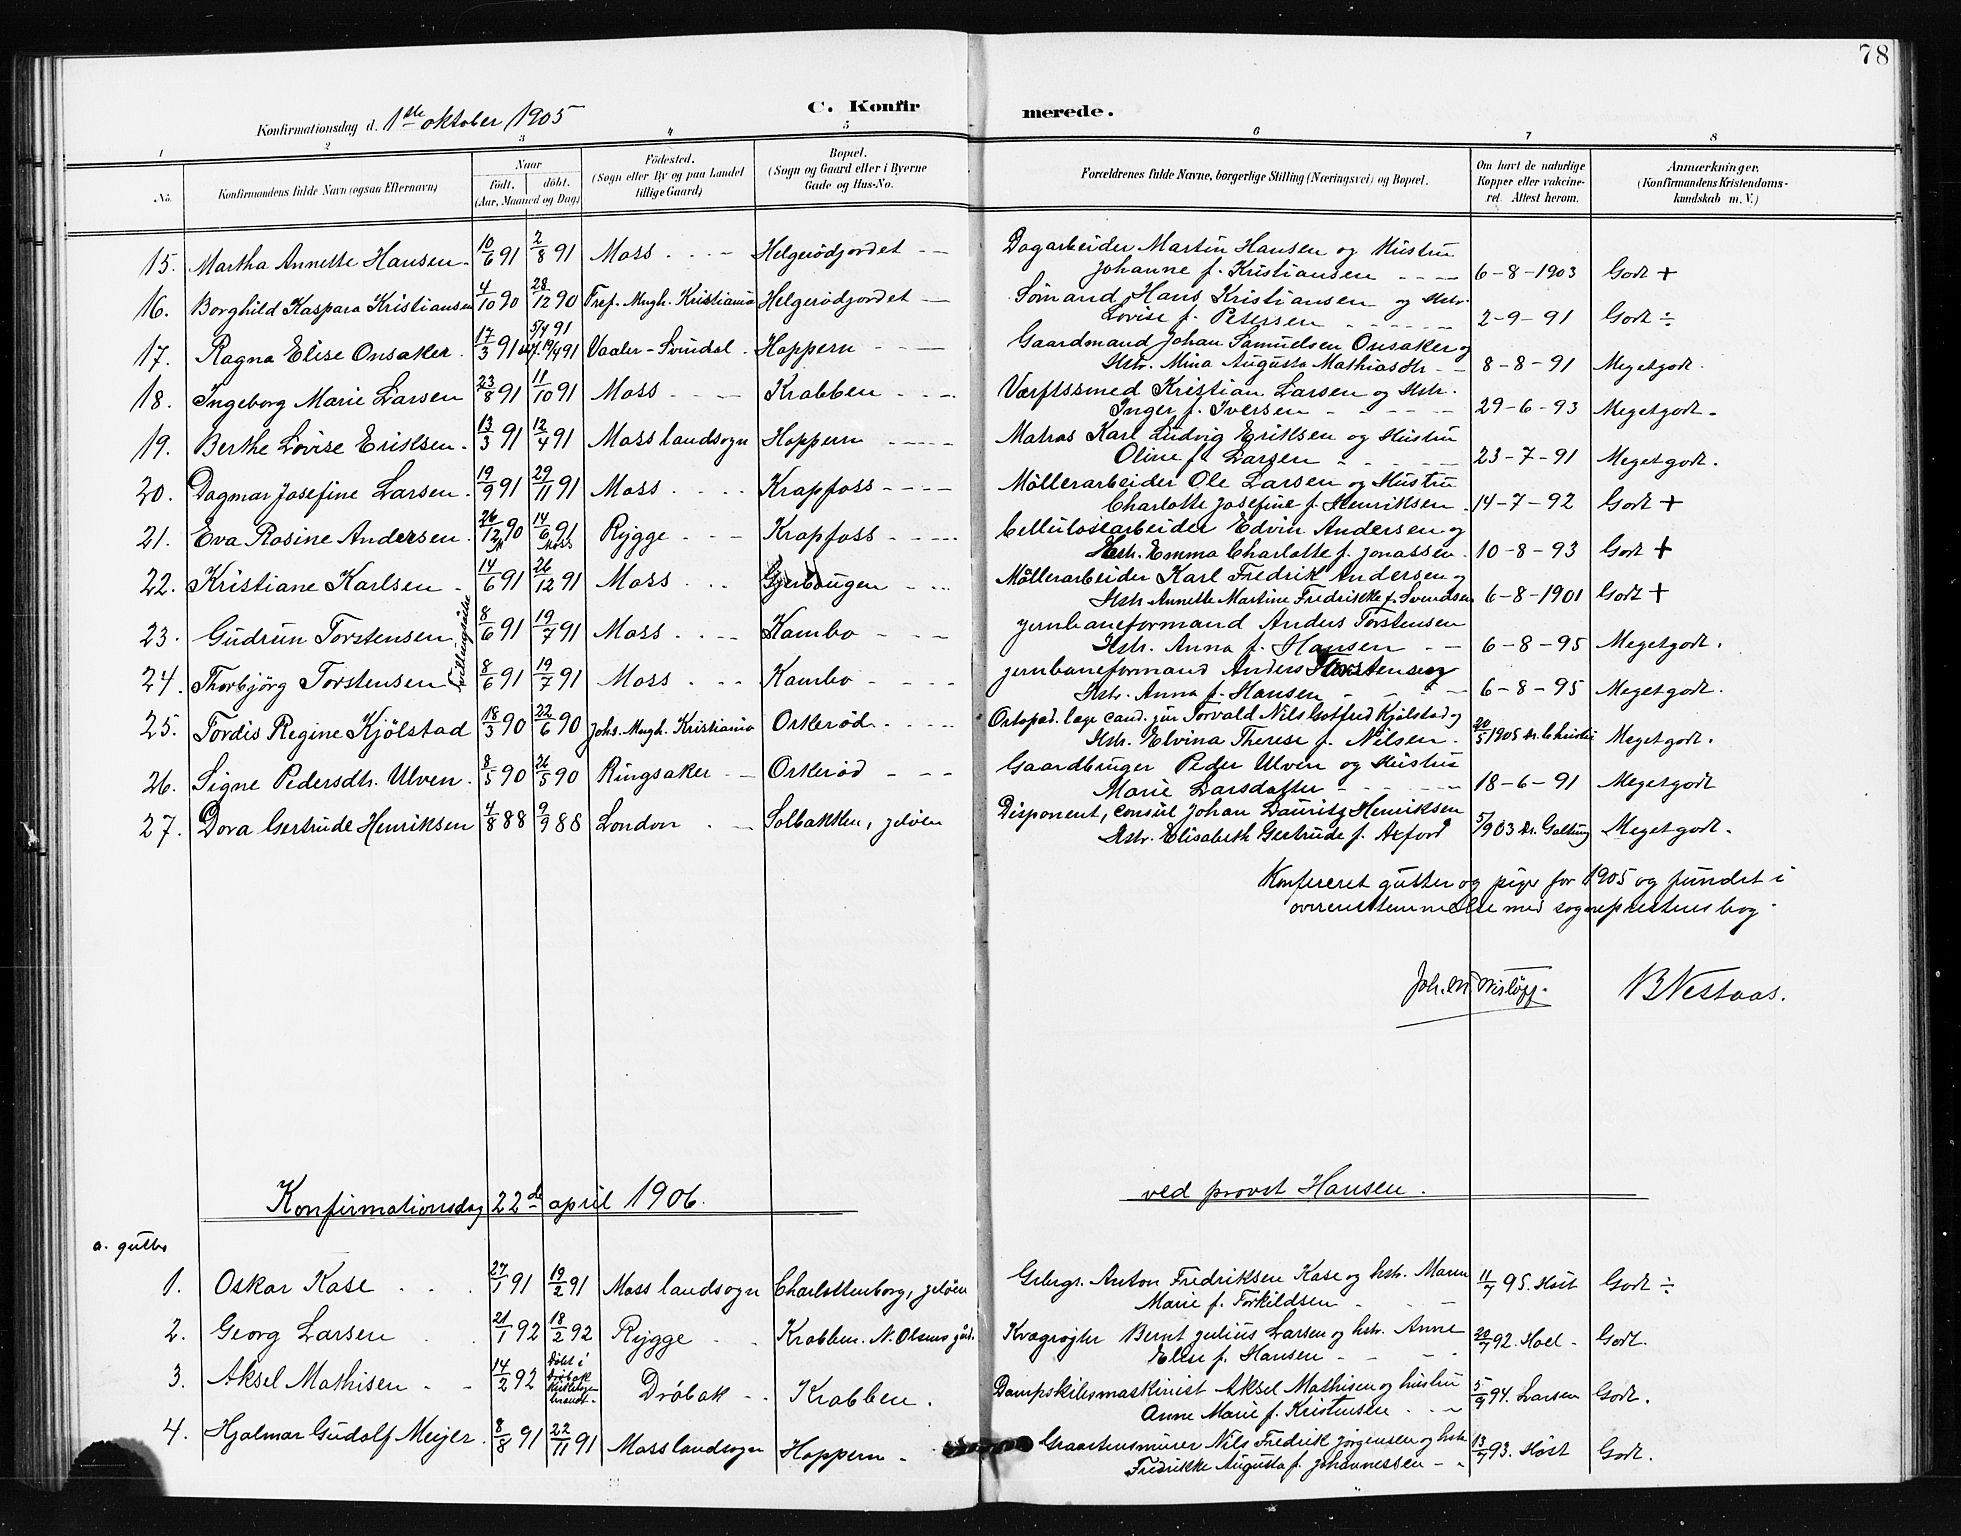 78
C. Konfirmerede.
Konfirmationsdag d. 1ste oktober 1905
1 2 3 4 5 6 7 8
No. Konfirmandens fulde Navn (ogsaa Efternavn) Naar födt. döbt. (Aar, Maaned og Dag) Födested. (Sogn eller By og paa Landet tillige Gaard) Bopæl. (Sogn og Gaard eller i Byerne Gade og Hus-No. Forældrenes fulde Navne, borgerlige Stilling (Næringsvei) og Bopæl. Om havt de naturlige Kopper eller vakcineret. Attest herom. Anmærkninger. (Konfirmandens Kristendomskundskab m. V.)
15. Martha Annette Hansen 10/6 91 2/8 91 Moss Helgerödjordet Dagarbeider Martin Hansen og Hustru
Johanne f. Kristiansen 6-8-1903 Godt +
16. Borghild Kaspara Kristiansen 4/10 90 28/12 90 Tref. Mngh. Kristiania Helgerödjordet Sömand Hans Kristiansen og Hstr.
Lovise f. Petersen 2-9-91 Godt ÷
17. Ragna Elise Onsaker 17/3 91 5/4 91 19/4 91 Vaaler-Svindal Hoppern Gaardmand Johan Samuelsen Onsaker og
Hstr. Mina Augusta Mathiasdtr 8-8-91 Meget godt.
18. Ingeborg Marie Larsen 23/8 91 11/10 91 Moss Krabben Værftssmed Kristian Larsen og Hstr.
Inger f. Iversen 29-6-93 Meget godt.
19. Berthe Lovise Eriksen 13/3 91 12/4 91 Moss landsogn Hoppern Matros Karl Ludvig Eriksen og Hustru
Oline f. Larsen 23-7-91 Meget godt.
20. Dagmar Josefine Larsen 19/9 91 29/11 91 Moss Krapfoss Möllerarbeider Ole Larsen og Hustru
Charlotte Josefine f. Henriksen 14-7-92 Godt +
21. Eva Rosine Andersen 26/12 90 14/6 91 Moss Rygge Krapfoss Cellulosearbeider Edvin Andersen og
Hstr. Emma Charlotte f. Jonassen 10-8-93 Godt +
22. Kristiane Karlsen 14/6 91 26/12 91 Moss Gjerbougen Möllerarbeider Karl Fredrik Andersen og
Hstr Annette Martine Fredrikke f. Svendsen 6-8-1901 Godt +
23. Gudrun Torstensen 8/6 91 19/7 91 Moss Kambo Jernbaneformand Anders Torstensen
Hstr. Anna f. Hansen 6-8-95 Meget godt.
tvillingsöstre
24. Thorbjörg Torstensen 8/6 91 19/7 91 Moss Kambo Jernbaneformand Anders Torstensen og
Hstr. Anna f. Hansen 6-8-95 Meget godt.
25. Tordis Regine Kjölstad 18/3 90 22/6 90 Johs. Mngh. Kristiania Orkeröd Ortopæd. læge cand. jur Torvald Nils Gotfred Kjölstad og
Hstr. Elvina Therese f. Nilsen 20/5 1905 Dr. Christie Meget godt.
26. Signe Pedersdtr. Ulven 8/5 90 26/5 90 Ringsaker Orkeröd Gaardbruger Peder Ulven og Hustru
Marie Larsdatter 18-6-91 Meget godt
27. Dora Gertrude Henriksen 4/8 88 9/9 88 London Solbakken, Jelöen Disponent, consul Johan Lauritz Henriksen
Hstr. Elisabeth Gertrude f. Axford 5/903 Dr. Galtung Meget godt.
Konfereret gutter og piger for 1905 og fundet i
overensstemmelse med sogneprestens bog.
Joh. M. Wislöff. B Nestaas.
Konfirmationsdag 22de april 1906. ved provst Hansen.
a. gutter
1. Oskar Kase 27/1 91 19/2 91 Moss landsogn Charlottenborg, Jelöen Grbrgr. Anton Fredriksen Kase og hstr. Maren
Marie f. Torkildsen 11/7 95. Höst Godt ÷
2. Georg Larsen 21/1 92 18/2 92 Rygge Krabben. N. Olsens gård. Kvægrögter Bernt Julius Larsen og hstr. Anne
Elise f. Hansen 20/7 92. Hoel Godt.
3. Aksel Mathisen 14/2 92 Döbt i Dröbak Dröbak Krabben. Dampskibsmaskinist Aksel Mathisen og hustru
Anne Marie f. Kristensen 5/9 94. Larsen Godt.
4. Hjalmar Gudolf Meijer 8/8 91 22/11 91 Moss landsogn Hoppern Graastensmurer Nils Fredrik Jörgensen og hstr
Fredrikke Augusta f. Johannessen 13/7 93. Höst Godt.